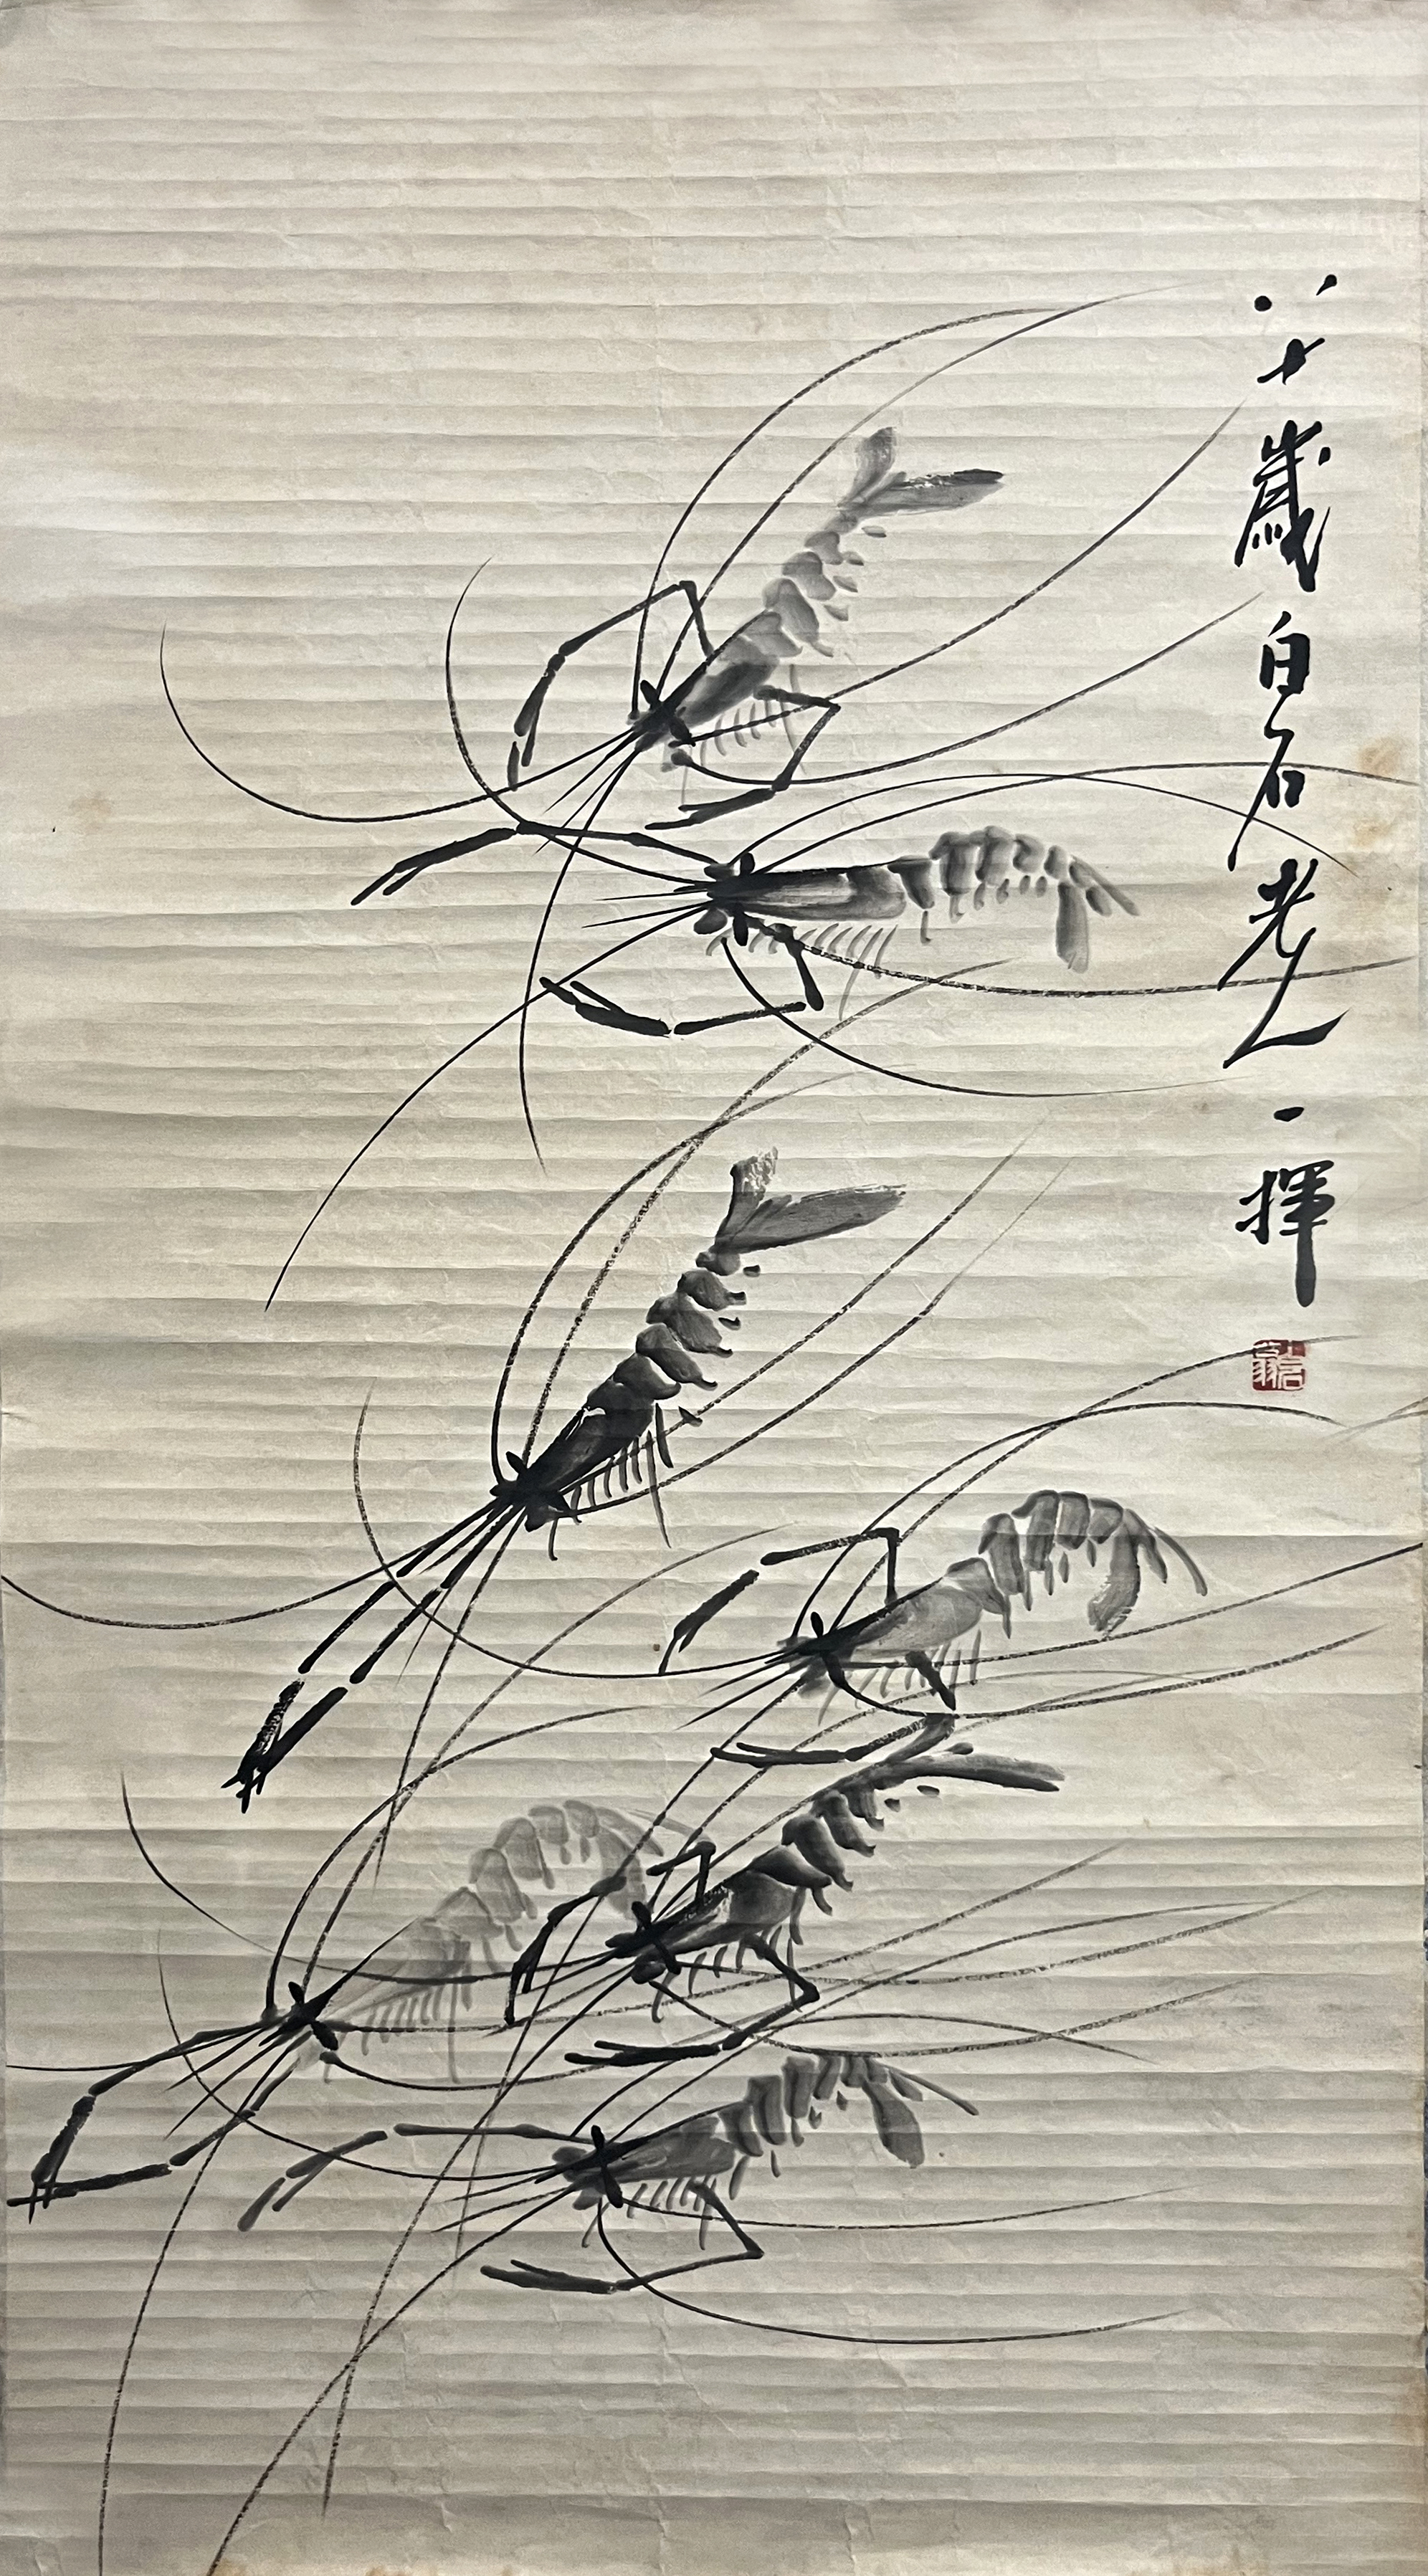 八十歲白石老人一揮